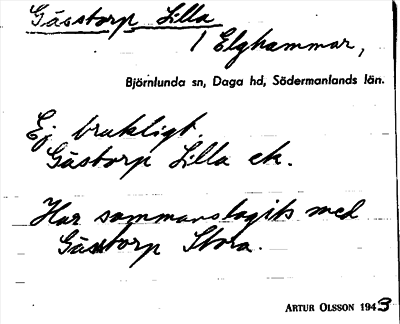 Gåsstorp Lilla
/ Elghammar,
Björnlunda sn, Daga hd, Södermanlands län.
Ej brukligt.
Gåstorp Lilla ek.
Har sammanslagits med
Gåstorp Stora.
ARTUR OLSSON 1943